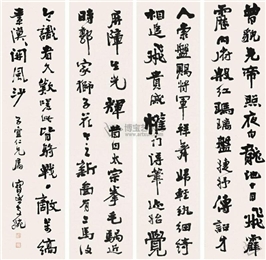 曾貌先帝照夜白龍池十日飛霹
靂内府殷紅瑪瑙盤婕妤傳詔才
人索盤賜將軍拜舞歸輕紈細綺
相追飛貴戚權門得筆跡始覺
屏障生光輝昔日太宗拳毛騧近
時郭家獅子花今之新圖有二馬復
令識者久歎嗟此皆騎戰一敵萬縞
素漠漠開風沙 子宜仁兄屬